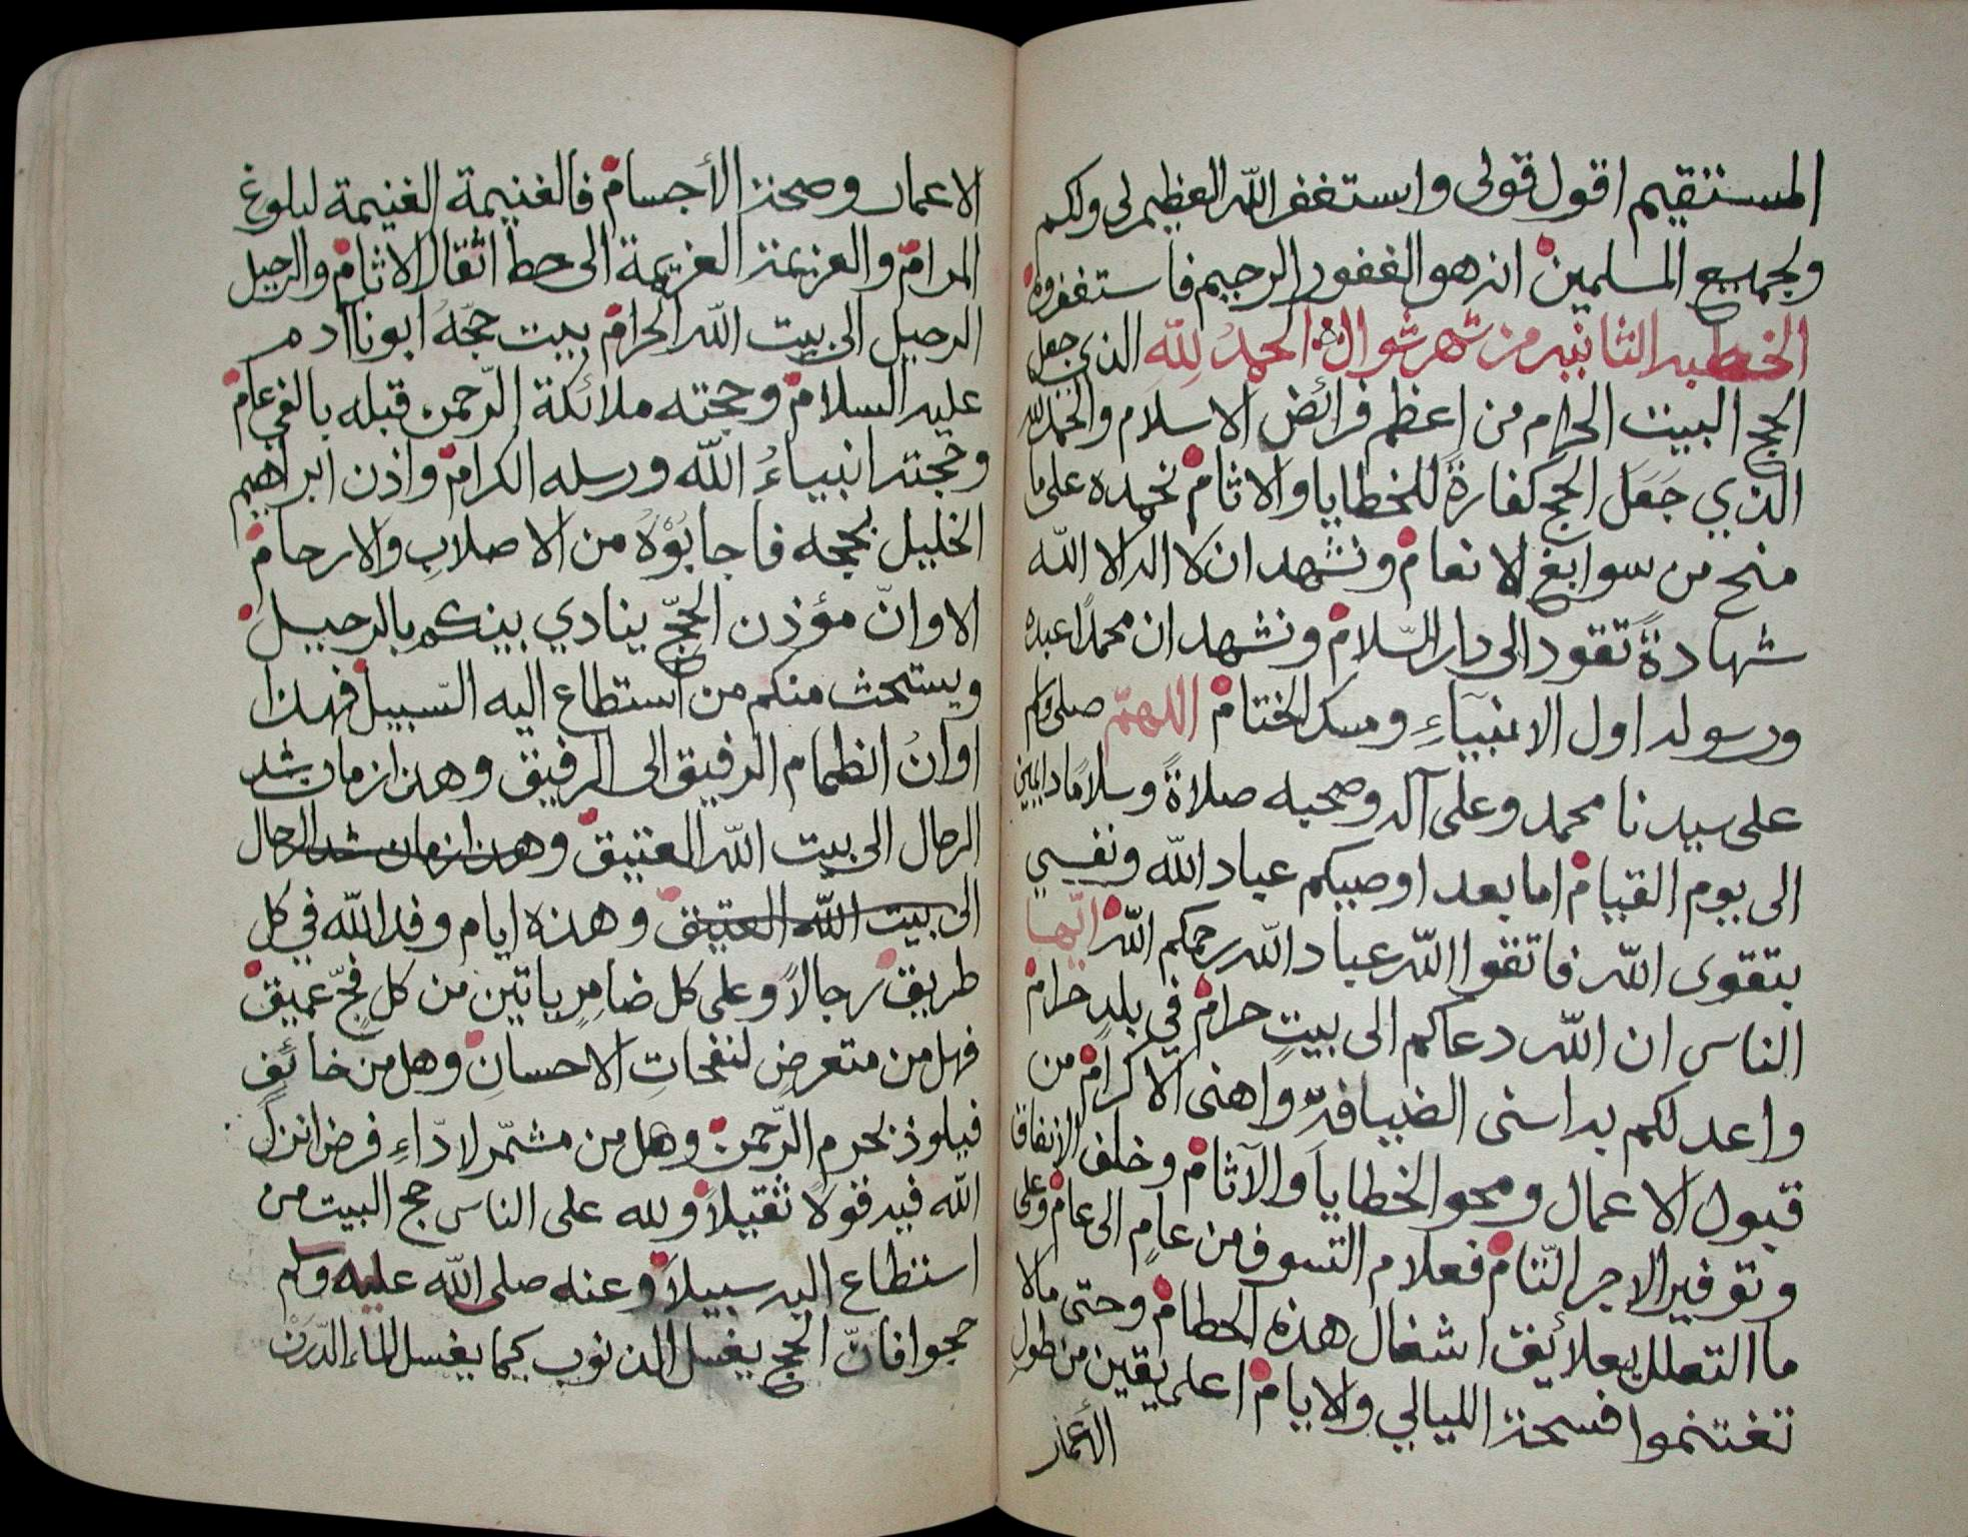 المستقيم اقول قولي واستغفر الله العظيم لي ولكم
ولجميع المسلمين انه هو الغفور الرحيم فاستغفروه
الخطبه الثانيه من شهر شوال الحمدُ لِلّهِ الذي جعل
الحج البيت الحرام من اعظم فرائض الاسلام والحمد لله
الذي جَعَلَ الحج كفارةً للخطايا والاثام نحمده على ما
منح من سوابغ الانعام ونشهد ان لا اله الا الله
شهادةً تقود الى دار السّلام ونشهد ان محمدًا عبده
ورسوله اول الانبيآءِ ومسك الختام اللهمّ صلي وسلم
على سيدنا محمد وعلى آله وصحبه صلاةً وسلامًا دايمين
الى يوم القيام اما بعد اوصيكم عباد الله ونفسي
بتقوى الله فاتقوا الله عباد الله رحمكم الله ايّها
الناس ان الله دعاكم الى بيتٍ حرام في بلدٍ حرام
واعد لكم به اسنى الضيافه واهنى الاكرام من
قبول الاعمال ومحو الخطايا والآثام وخلف الانفاق
وتوفير الاجر التّام فعلام التسوف من عامٍ الى عام وعلى
ما التعلل بعلائق اشغال هذه الحطام وحتى ما لا
تغتنموا فسحة الليالي والايام اعلى يقين من طول
الأعمار
الاعمار وصحة الأجسام فالغنيمة الغنيمة لبلوغ
المرام والعزيمة العزيمة الى حط اثقال الاثام والرحيل
الرحيل الى بيت الله الحرام بيت حجّهُ ابونا آدم
عليه السلام وحجته ملائكة الرّحمن قبله بالفي عام
وحجته انبياءُ الله ورسله الكرام واذن ابراهيم
الخليل بحجه فاجابُوْهُ من الاصلابِ والارحام
الا وانّ مؤذن الحجّ ينادي بينكم بالرحيل
ويستحث منكم من استطاع اليه السّبيل فهذا
اوانُ انظمام الرفيق الى الرفيق وهذا زمان شد
الرحال الى بيت الله العتيق وهذا زمان شد الرحال
الى بيت الله العتيق وهذه ايام وفد الله في كل
طريق رجالاً وعلى كل ضامرٍ ياتين من كل فجّ عميق
فهل من متعرضٍ لنفحاتِ الاحسانِ وهل من خائفٍ
فيلوذ بحرم الرّحمن وهل من مشمّر لادّاءِ فرض انزل
الله فيه قولا ثقيلاً ولله على الناس حج البيت من
استطاع اليه سبيلاً وعنه صلى الله عليه وسلم
حجوا فانّ الحج يغسل الذنوب كما يغسل الماء الدّرن